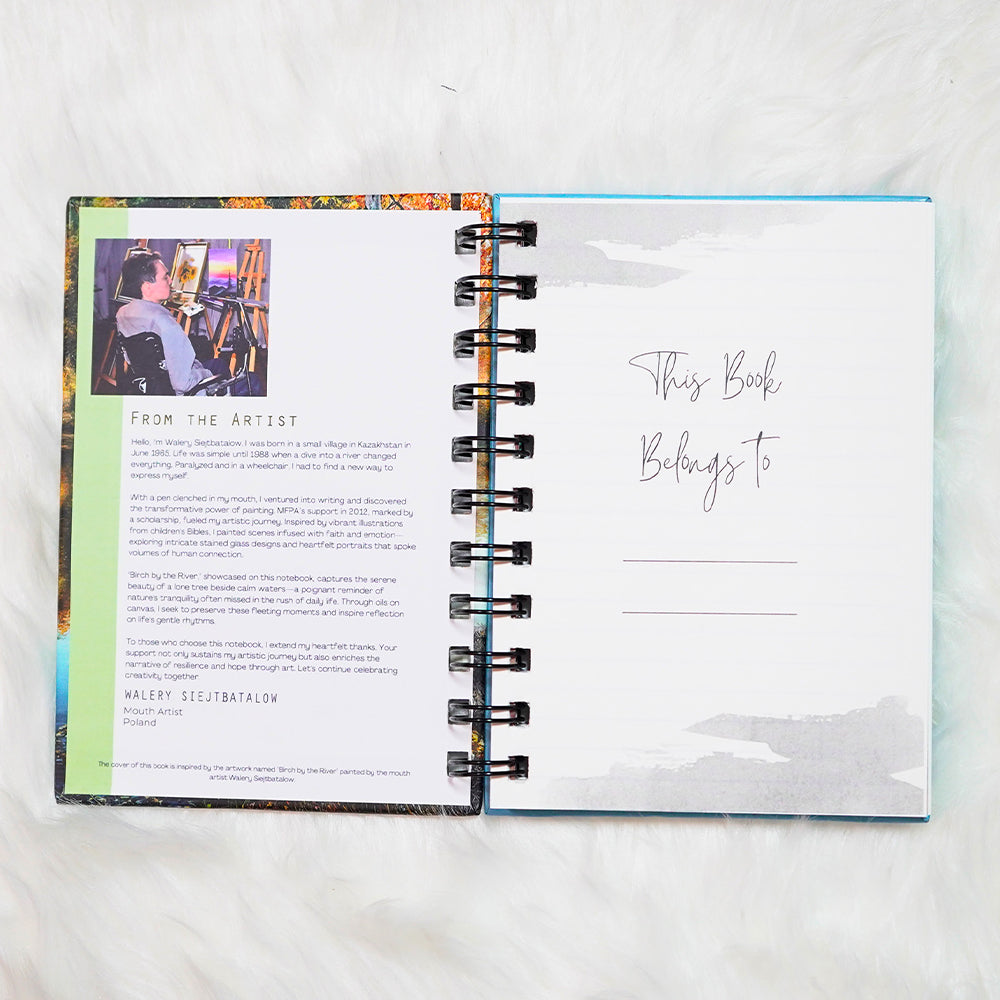 FROM THE ARTIST
Hello, I'm Walery Siejtbatalow. I was born in a small village in Kazakhstan in
June 1965. Life was simple until 1988 when a dive into a river changed
everything. Paralyzed and in a wheelchair, I had to find a new way to
express myself.
With a pen clenched in my mouth, I ventured into writing and discovered
the transformative power of painting. MFPA's support in 2012, marked by
a scholarship, fueled my artistic journey. Inspired by vibrant illustrations
from children's Bibles, I painted scenes infused with faith and emotion—
exploring intricate stained glass designs and heartfelt portraits that spoke
volumes of human connection.
"Birch by the River," showcased on this notebook, captures the serene
beauty of a lone tree beside calm waters—a poignant reminder of
nature's tranquility often missed in the rush of daily life. Through oils on
canvas, I seek to preserve these fleeting moments and inspire reflection
on life's gentle rhythms.
To those who choose this notebook, I extend my heartfelt thanks. Your
support not only sustains my artistic journey but also enriches the
narrative of resilience and hope through art. Let's continue celebrating
creativity together
WALERY SIEJTBATALOW
Mouth Artist
Poland
The cover of this book is inspired by the artwork named 'Birch by the River' painted by the mouth
artist Walery Siejtbatalow
This Book
Belongs To